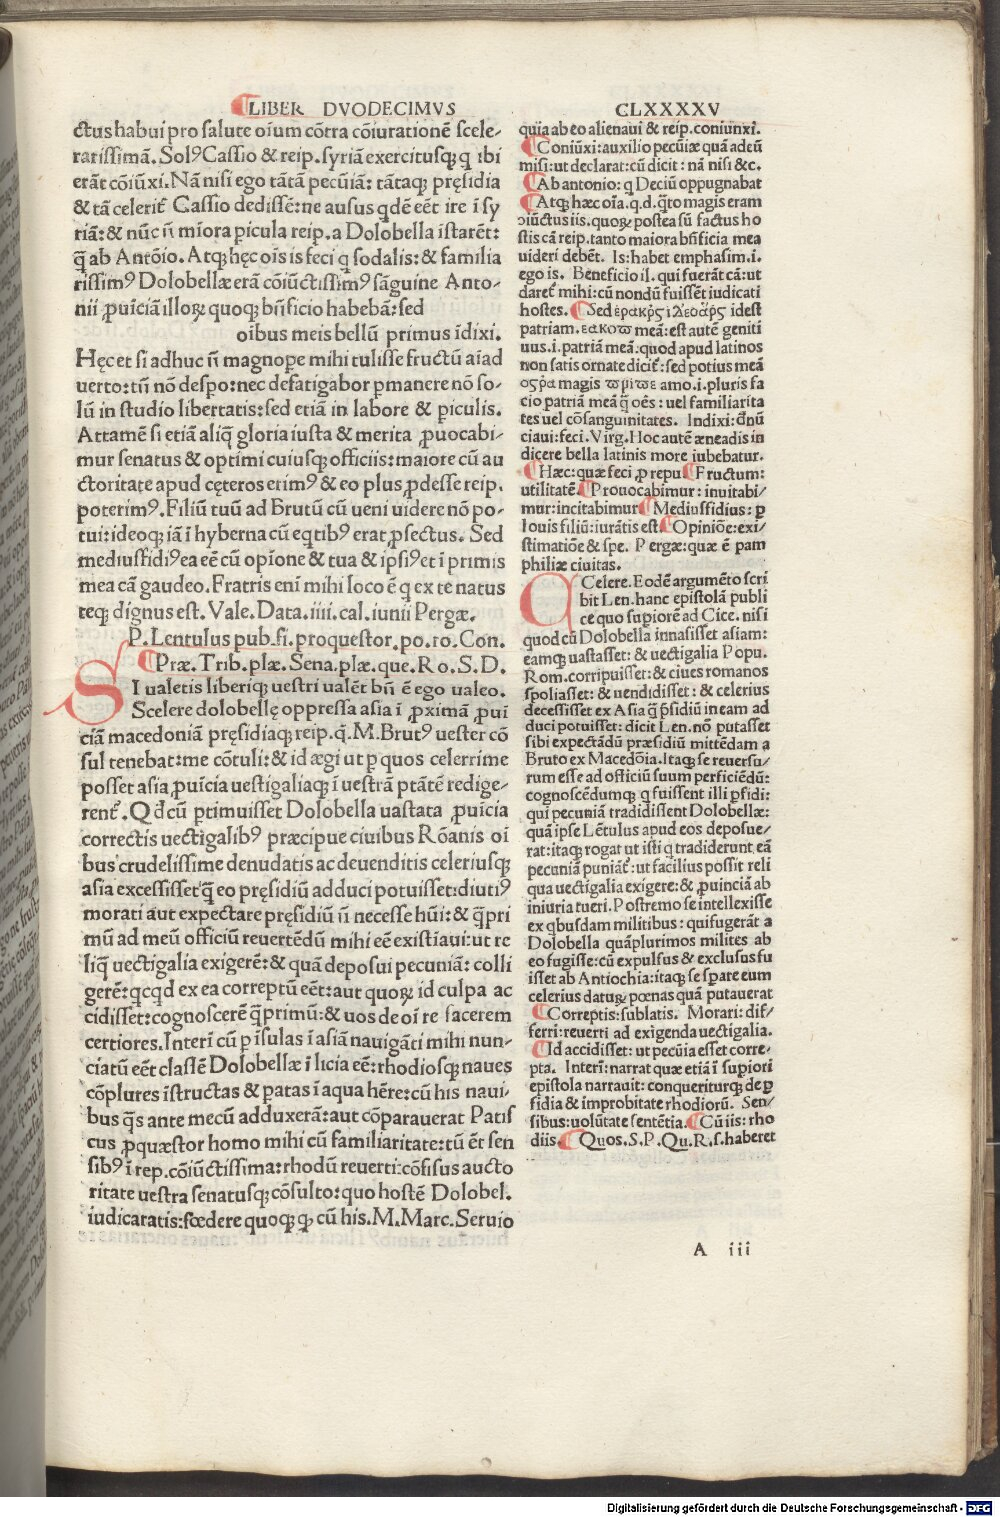 LIBER DVODECIMVS
CLXXXXV
ctus habui pro salute oĩum cõtra cõiurationẽ scele-
ratissimã. Solꝰ Cassio & reip. syriã exercitusqꝫ q ibi
erãt cõiũxi. Nã nisi ego tãtã pecũiã: tãtaqꝫ pręsidia
& tã celerit̃ Cassio dedissẽ: ne ausus qdẽ eẽt ire ĩ sy
riã: & nũc ñ mĩora ꝑicula reip. a Dolobella ĩstarẽt:
q̃ ab Antõio. Atqꝫ hęc oĩs is feci q sodalis: & familia
rissimꝰ Dolobellæ erã cõiũctissimꝰ sãguine Anto-
nii ꝓuĩciã illoꝝ quoqꝫ bñficio habebã: sed
oĩbus meis bellũ primus ĩdixi.
Hęc et si adhuc ñ magnope mihi tulisse fructũ aĩad
uerto: tũ nõ despo: nec defatigabor ꝑmanere nõ so-
lũ in studio libertatis: sed etiã in labore & ꝑiculis.
Attamẽ si etiã aliq̃ gloria iusta & merita ꝓuocabi-
mur senatus & optimi cuiusqꝫ officiis: maiore cũ au
ctoritate apud cęteros erimꝰ & eo plus ꝓdesse reip.
poterimꝰ. Filiũ tuũ ad Brutũ cũ ueni uidere nõ po-
tui: ideoqꝫ iã ĩ hyberna cũ eqtibꝰ erat ꝓfectus. Sed
mediusfidiꝰ ea eẽ cũ opĩone & tua & ipsiꝰ et ĩ primis
mea cã gaudeo. Fratris enĩ mihi loco ẽ q ex te natus
teqꝫ dignus est. Vale. Data. iiii. cal. iunii Pergæ.
P. Lentulus pub. fi. proquestor. po. ro. Con.
Præ. Trib. plæ. Sena. plæ. que. Ro. S. D.
SI ualetis liberiqꝫ uestri ualẽt bñ ẽ ego ualeo.
Scelere dolobellę oppressa asia ĩ ꝓximã ꝓuĩ
ciã macedoniã pręsidiaqꝫ reip. q̃. M. Brutꝰ uester cõ
sul tenebat: me cõtuli: & id ægi ut ꝑ quos celerrime
posset asia ꝓuĩcia uestigaliaqꝫ ĩ uestrã ptãtẽ redige-
rent̃. Qđ cũ ꝑtimuisset Dolobella uastata ꝓuĩcia
correctis uectigalibꝰ præcipue ciuibus Rõanis oĩ
bus crudelissime denudatis ac deuenditis celeriusqꝫ
asia excessisset q̃ eo pręsidiũ adduci potuisset: diutiꝰ
morati aut expectare pręsidiũ ñ necesse hũi: & q̃pri
mũ ad meũ officiũ reuertẽdũ mihi eẽ existĩaui: ut re
liq̃ uectigalia exigerẽ: & quã deposui pecuniã: colli
gerẽ: qcqd ex ea correptũ eẽt: aut quoꝝ id culpa ac
cidisset: cognoscerẽ q̃primũ: & uos de oĩ re facerem
certiores. Interĩ cũ ꝑ ĩsulas ĩ asiã nauigãti mihi nun-
ciatũ eẽt classẽ Dolobellæ ĩ licia eẽ: rhodiosqꝫ naues
cõplures ĩstructas & patas ĩ aqua hẽre: cũ his naui-
bus q̃s ante mecũ adduxerã: aut cõparauerat Patis
cus ꝓquæstor homo mihi cũ familiaritate: tũ ẽt sen
sibꝰ ĩ rep. cõiũctissima: rhodũ reuerti: cõfisus aucto
ritate uestra senatusqꝫ cõsulto: quo hostẽ Dolobel.
iudicaratis: fœdere quoqꝫ qꝫ cũ his. M. Marc. Seruio
quia ab eo alienaui & reip. coniunxi.
Coniũxi: auxilio pecũiæ quã ad eũ
misi: ut declarat: cũ dicit: nã nisi &c.
Ab antonio: q Deciũ oppugnabat
Atqꝫ hæc oĩa. q. d. q̃to magis eram
ↄiũctus iis. quoꝝ postea sũ factus ho
stis cã reip. tanto maiora bñficia mea
uideri debẽt. Is: habet emphasim. i.
ego is. Beneficio il. qui fuerãt cã: ut
daret̃ mihi: cũ nondũ fuissẽt iudicati
hostes. Sed idest
patriam. meã: est autẽ geniti
uus. i. patriã meã: quod apud latinos
non satis ornate dicit̃: sed potius meã
magis amo. i. pluris fa
cio patriã meã q̃ oẽs: uel familiarita
tes uel cõsanguinitates. Indixi: đnũ
ciaui: feci. Virg. Hoc autẽ æneadis in
dicere bella latinis more iubebatur.
Hæc: quæ feci ꝓ repu. Fructum:
utilitatẽ. Prouocabimur: inuitabi-
mur: incitabimur Mediusfidius: ꝑ
Iouis filiũ: iurãtis est. Opiniõe: exi-
stimatiõe & spe. Pergæ: quæ ẽ pam
philiæ ciuitas.
SCelere. Eodẽ argumẽto scri
bit Len. hanc epistolã publi
ce quo supiorẽ ad Cice. nisi
quod cũ Dolobella innasisset asiam:
eamqꝫ uastasset: & uectigalia Popu.
Rom. corripuisset: & ciues romanos
spoliasset: & uendidisset: & celerius
decessisset ex Asia q̃ pręsidiũ in eam ad
duci potuisset: dicit Len. nõ putasset
sibi expectãdũ præsidiũ mittẽdam a
Bruto ex Macedõia. Itaqꝫ se reuersu-
rum esse ad officiũ suum perficiẽdũ:
cognoscẽdumqꝫ q fuissent illi ꝑfidi:
qui pecuniã tradidissent Dolobellæ:
quã ipse Lẽtulus apud eos deposue-
rat: itaqꝫ rogat ut isti q tradiderunt eã
pecuniã puniãt̃: ut facilius possit reli
qua uectigalia exigere: & ꝓuinciã ab
iniuria tueri. Postremo se intellexisse
ex qbusdam militibus: qui fugerãt a
Dolobella quãplurimos milites ab
eo fugisse: cũ expulsus & exclusus fu
isset ab Antiochia: itaqꝫ se sperare eum
celerius daturꝝ pœnas quã putauerat
Correptis: sublatis. Morari: dif-
ferri: reuerti ad exigenda uectigalia.
Id accidisset: ut pecũia esset corre-
pta. Interĩ: narrat quæ etiã ĩ supiori
epistola narrauit: conqueriturqꝫ de ꝑ
fidia & improbitate rhodiorũ. Sen-
sibus: uolũtate sentẽtia. Cũ iis: rho
diis. Quos. S. P. Qu. R. s. haberet
A iii
Digitalisierung gefördert durch die Deutsche Forschungsgemeinschaft - DFG